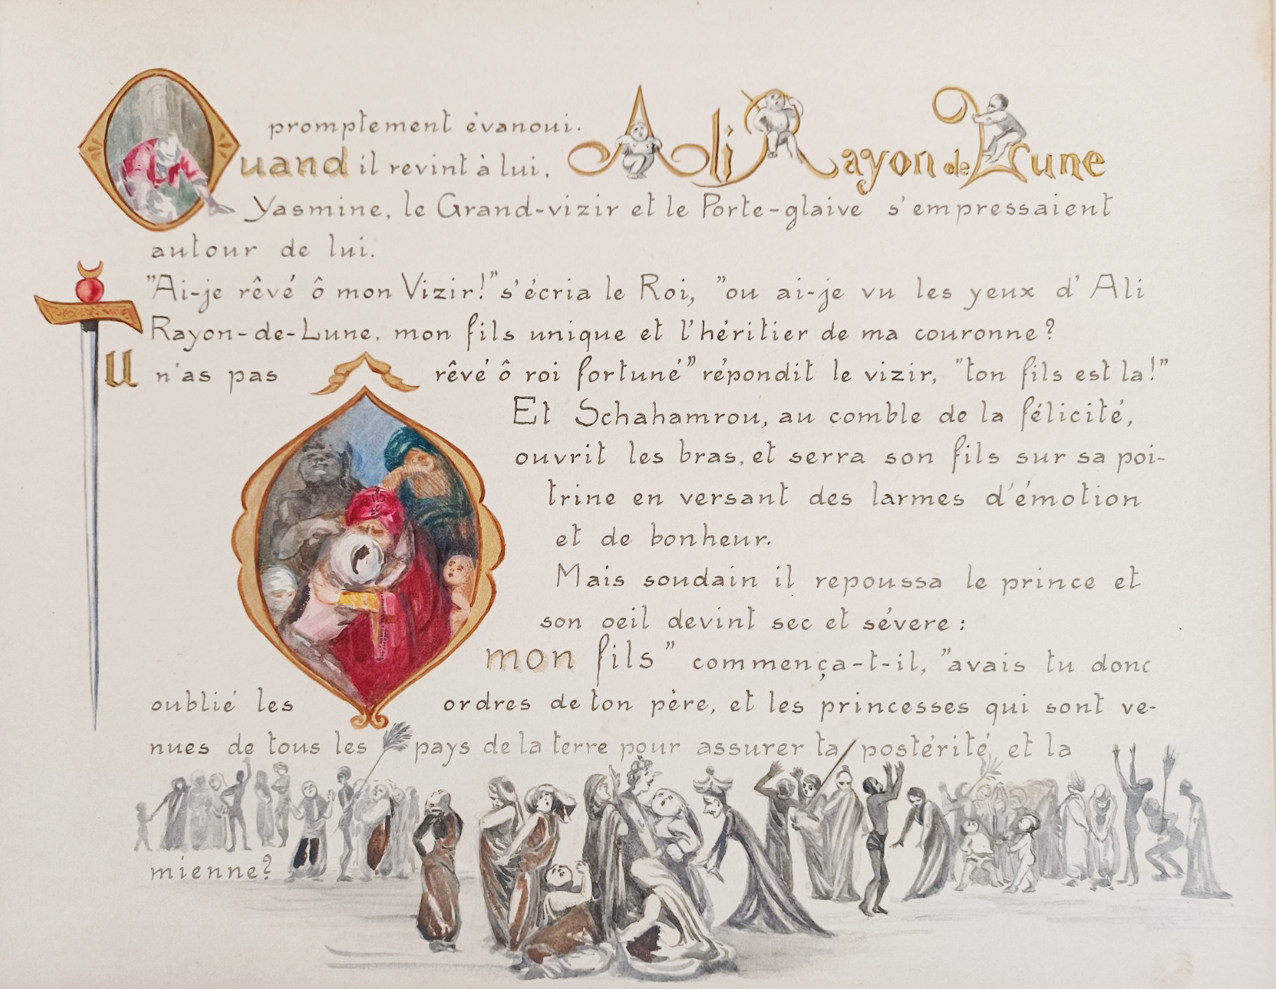 promptement évanoui.
Quand il revint à lui, Ali Rayon de Lune
Yasmine, le Grand-vizir et le Porte-glaive s'empressaient
autour de lui.
"Ai-je rêvé ô mon Vizir!" s'écria le Roi, "ou ai-je vu les yeux d'Ali
Rayon-de-Lune, mon fils unique et l'héritier de ma couronne?
Tu n'as pas rêvé ô roi fortuné" répondit le vizir, "ton fils est la!"
Et Schahamrou, au comble de la félicité,
ouvrit les bras, et serra son fils sur sa poi-
trine en versant des larmes d'émotion
et de bonheur.
Mais soudain il repoussa le prince et
son oeil devint sec et sévere :
Ô mon fils" commença-t-il, "avais tu donc
oublié les ordres de ton père, et les princesses qui sont ve-
nues de tous les pays de la terre pour assurer ta postérité, et la
mienne?